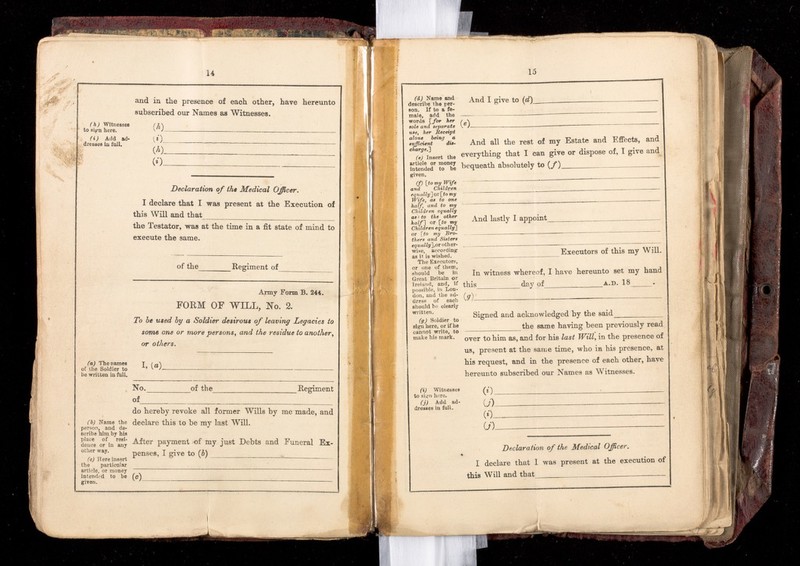 14
and in the presence of each other, have hereunto
subscribed our Names as Witnesses.
(h) Witnesses
to sign here.
(i) Add ad-
dresses in full.
(h)
(i)
(h)
(i)
Declaration of the Medical Officer.
I declare that I was present at the Execution of
this Will and that
the Testator, was at the time in a fit state of mind to
execute the same.
of the Regiment of
Army Form B. 244.
FORM OF WILL, No. 2.
To be used by a Soldier desirous of leaving Legacies to
some one or more persons, and the residue to another,
or others.
(a) The names
of the Soldier to
be written in full.
I, (a)
No. of the Regiment
of
do hereby revoke all former Wills by me made, and
declare this to be my last Will.
(b) Name the
person, and de-
scribe him by his
place of resi-
dence or in any
other way.
(c) Here insert
the particular
article, or money
intended to be
given.
After payment of my just Debts and Funeral Ex-
penses, I give to (b)
(c)
15
(d) Name and
describe the per-
son. If to a fe-
male, add the
words [for her
sole and separate
use, her Receipt
alone being a
sufficient dis-
charge.]
(e) Insert the
article or money
intended to be
given.
(f) [to my Wife
and Children
equally] or [to my
Wife, as to one
half, and to my
Children equally
as to the other
half] or [to my
Children equally]
or [to my Bro-
thers and Sisters
equally], or other-
wise, according
as it is wished.
The Executors,
or one of them,
should be in
Great Britain or
Ireland, and, if
possible, in Lon-
don, and the ad-
dress of each
should be clearly
written.
(g) Soldier to
sign here, or if he
cannot write, to
make his mark.
And I give to (d)
(e)
And all the rest of my Estate and Effects, and
everything that I can give or dispose of, I give and
bequeath absolutely to (f)
And lastly I appoint
Executors of this my Will.
In witness whereof, I have hereunto set my hand
this day of A.D. 18 .
(g)
Signed and acknowledged by the said
the same having been previously read
over to him as, and for his last Will, in the presence of
us, present at the same time, who in his presence, at
his request, and in the presence of each other, have
hereunto subscribed our Names as Witnesses.
(i) Witnesses
to sign here.
(j) Add ad-
dresses in full.
(i)
(j)
(i)
(j)
Declaration of the Medical Officer.
I declare that I was present at the execution of
this Will and that